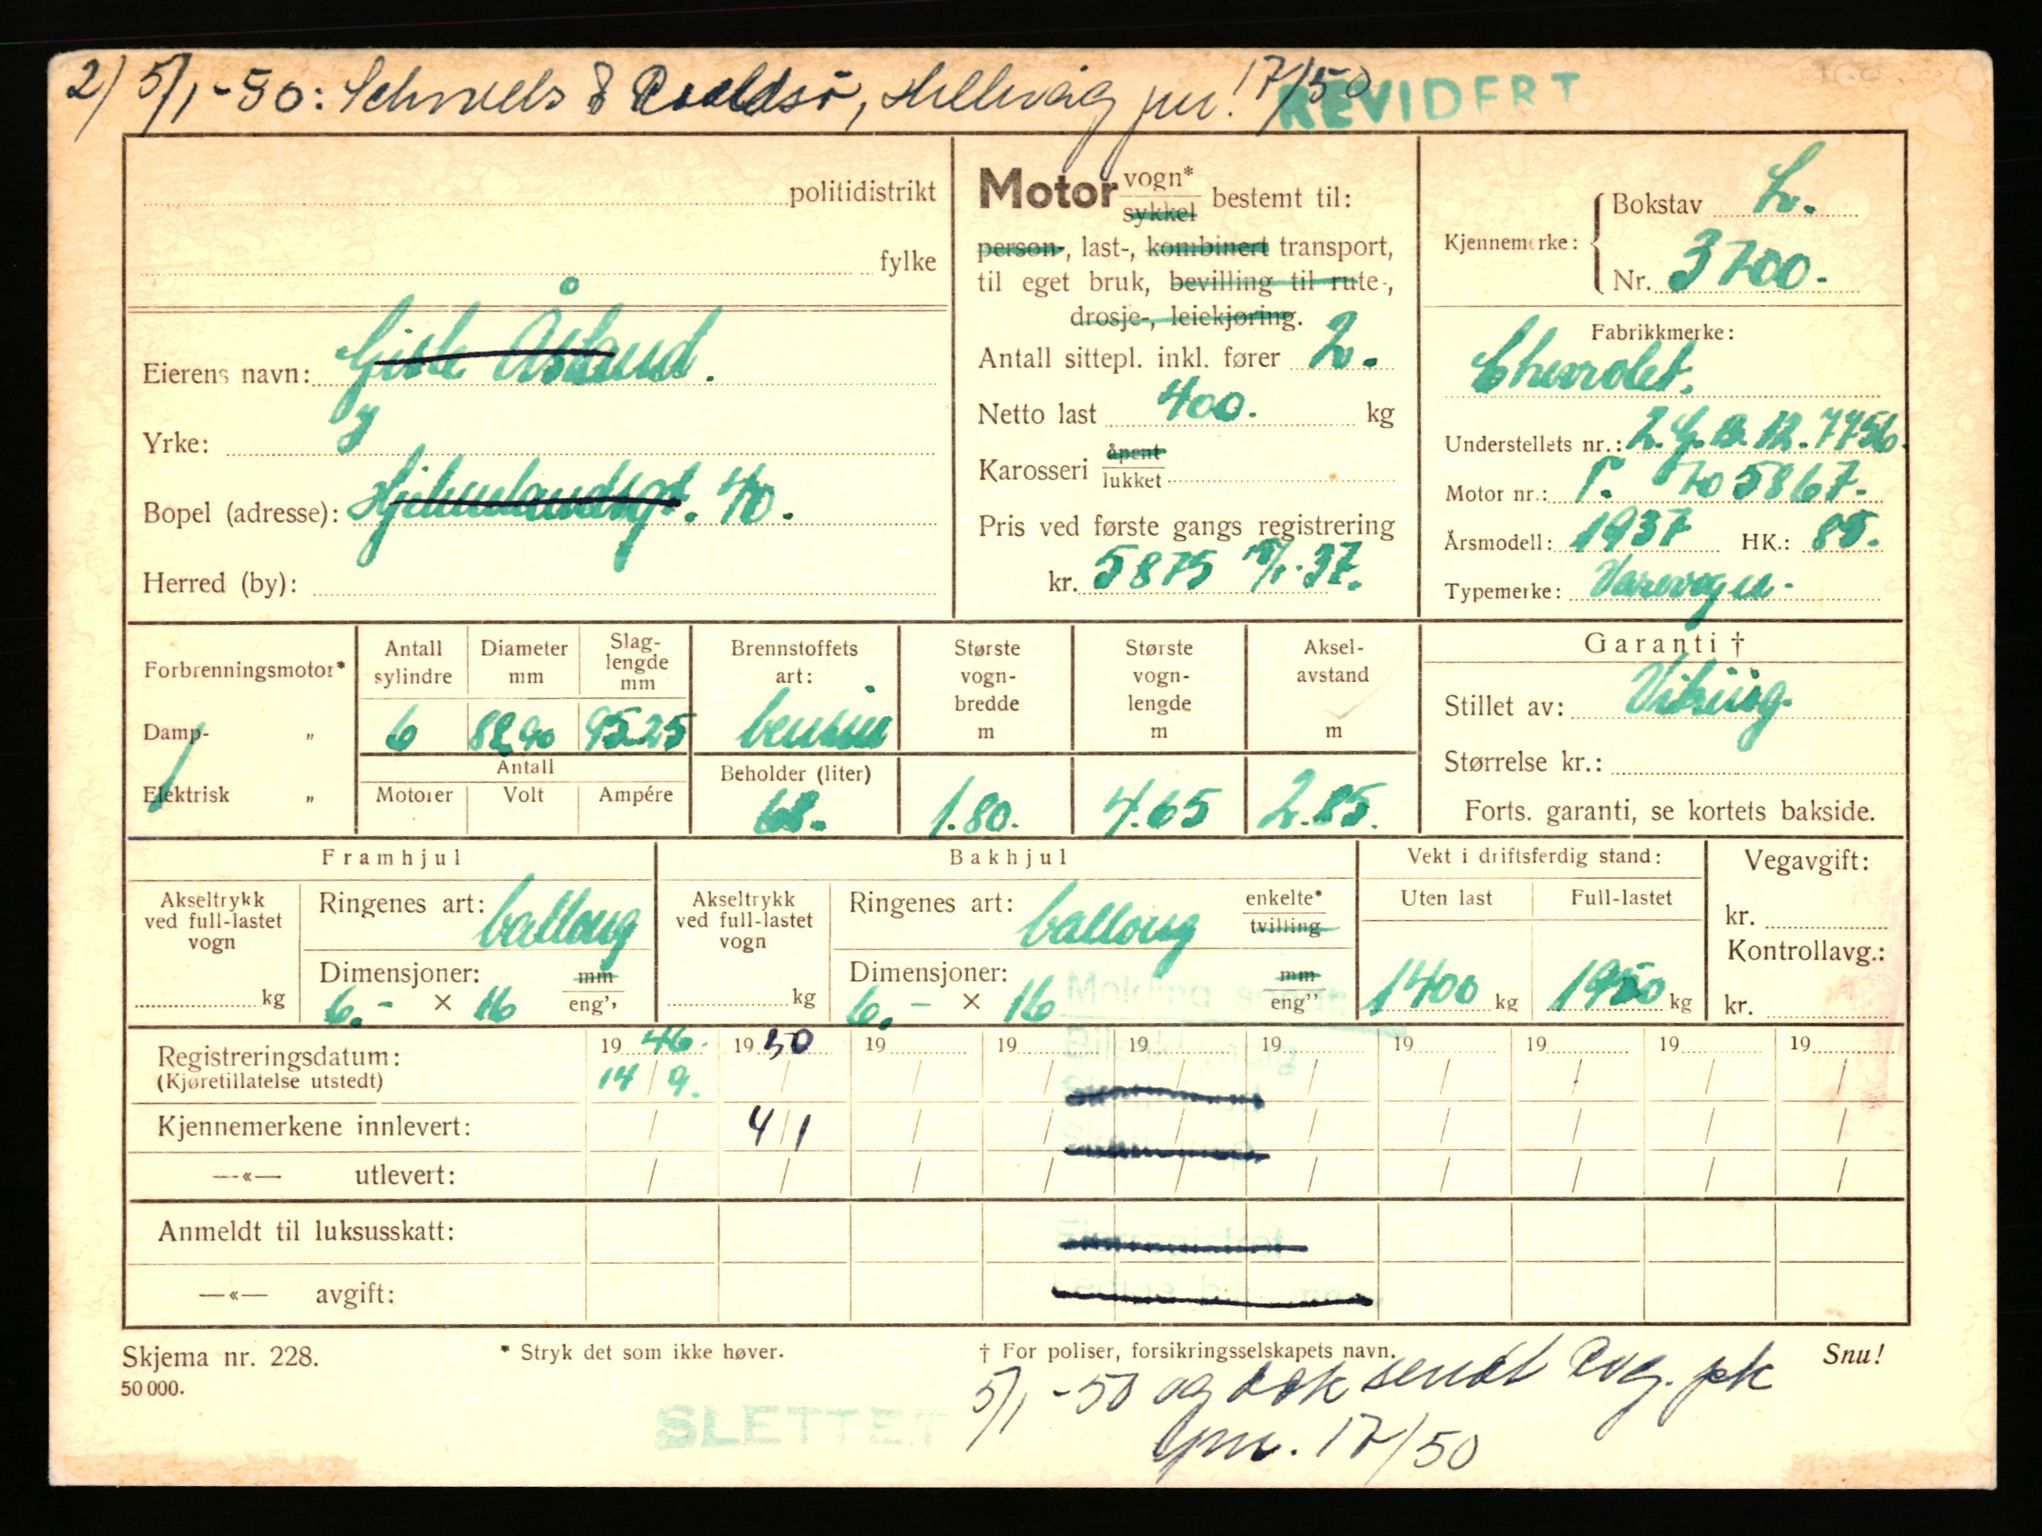 2) 5/1-50: & Hillevåg jnr! 17/50
REVIDERT
politidistrikt
fylke
Eierens navn: Gisle Åsland.
Yrke:
Bopel (adresse): Hjelmelandsgt. 40.
Herred (by):
Motor vogn*
sykkel bestemt til:
person-, last-, kombinert transport,
til eget bruk, bevilling til rute-,
drosje-, leiekjøring.
Antall sittepl. inkl. fører 2.
Netto last 400. kg
Karosseri åpent
lukket
Pris ved første gangs registrering
kr. 5875 37.
Kjennemerke: Bokstav L.
Nr. 3700.
Fabrikkmerke:
Chevrolet.
Understellets nr.: 2.G.B.12.7756.
Motor nr.: T. 705867.
Årsmodell: 1937 HK.: 85.
Typemerke: Varevogn.
Forbrenningsmotor*
Damp- „
Elektrisk „
Antall sylindre
Diameter mm
Slag-lengde mm
6 88,90 95.25
Antall
Motorer Volt Ampére
Brennstoffets art:
bensin
Beholder (liter)
68.
Største vogn-bredde m
1.80.
Største vogn-lengde m
4.65
Aksel-avstand m
2.85.
Garanti †
Stillet av: Viking.
Størrelse kr.:
Forts. garanti, se kortets bakside.
Framhjul
Akseltrykk ved full-lastet vogn
kg
Ringenes art: ballong
Dimensjoner: mm
6.- × 16 eng''
Bakhjul
Akseltrykk ved full-lastet vogn
kg
Ringenes art: ballong enkelte*
tvilling
Dimensjoner: mm
6.- × 16 eng''
Vekt i driftsferdig stand:
Uten last Full-lastet
1400 kg 1950 kg
Vegavgift:
kr.
Kontrollavg.:
kr.
Melding sendt
Registreringsdatum: 19 46. 19 50 19 19 19 19 19 19 19 19
(Kjøretillatelse utstedt) 14/9. / / / / / / / / /
Kjennemerkene innlevert: / 4/1 / / / / / / / /
—«— utlevert: / / / / / / / / / /
Anmeldt til luksusskatt:
—«— avgift:
Skjema nr. 228.
50 000.
* Stryk det som ikke høver.
† For poliser, forsikringsselskapets navn.
Snu!
5/1-50 og dok sendt Rog. pk
jnr. 17/50
SLETTET